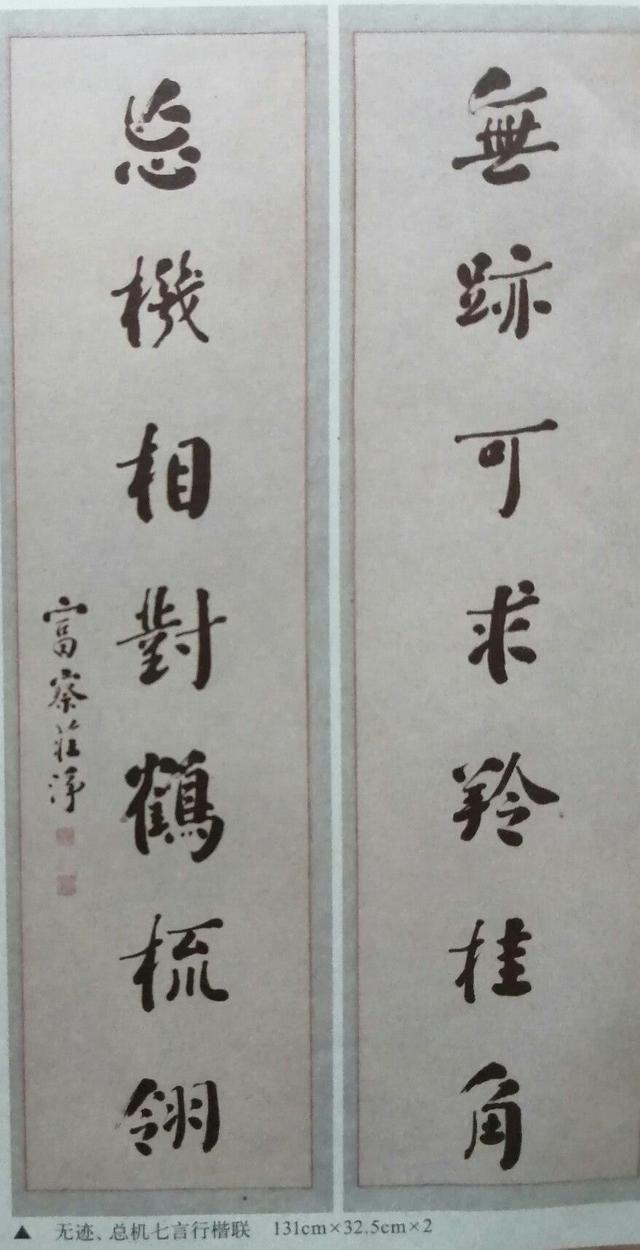 無跡可求羚桂角
忘機相對鶴梳翎
富察莊淨
▲ 无迹、总机七言行楷联 131cm×32.5cm×2